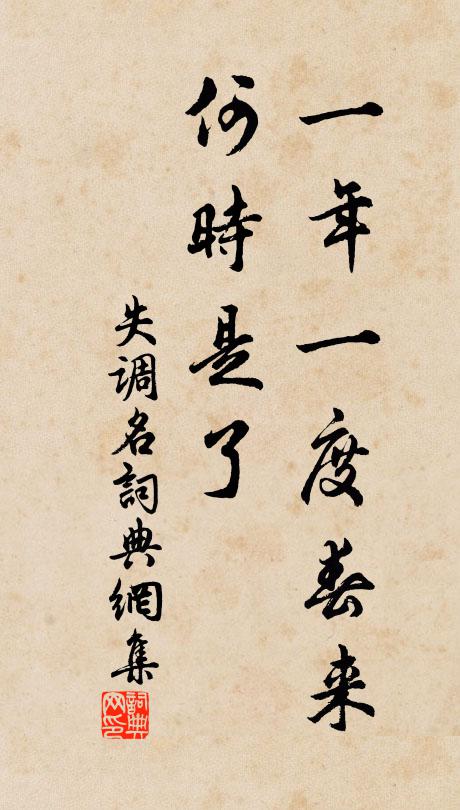 一年一度春来
何時是了
失调名詞典網集
詞典网印